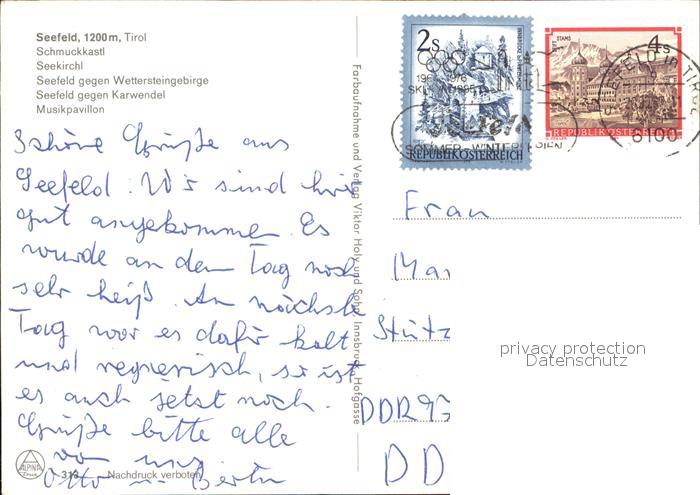 Seefeld, 1200m, Tirol
Schmuckkastl
Seekirchl
Seefeld gegen Wettersteingebirge
Seefeld gegen Karwendel
Musikpavillon
Schöne Grüße aus
Seefeld. Wir sind hier
gut angekommen. Es
wurde an dem Tag noch
sehr heiß. Am nächste
Tag war es dafür kalt
und regnerisch, so ist
es auch jetzt noch.
Grüße bitte alle
von uns
Otto u. Berta
ALPINA
313 Nachdruck verboten
Farbaufnahme und Verlag Viktor Holy und Sohn Innsbruck, Hofgasse
2s
REPUBLIK ÖSTERREICH
SOMMER-WINTER
4s
STIFT STAMS
REPUBLIK ÖSTERREICH
SEEFELD in TIROL
6100
Frau
Mar
Stütz
DDR 93
DD
privacy protection
Datenschutz